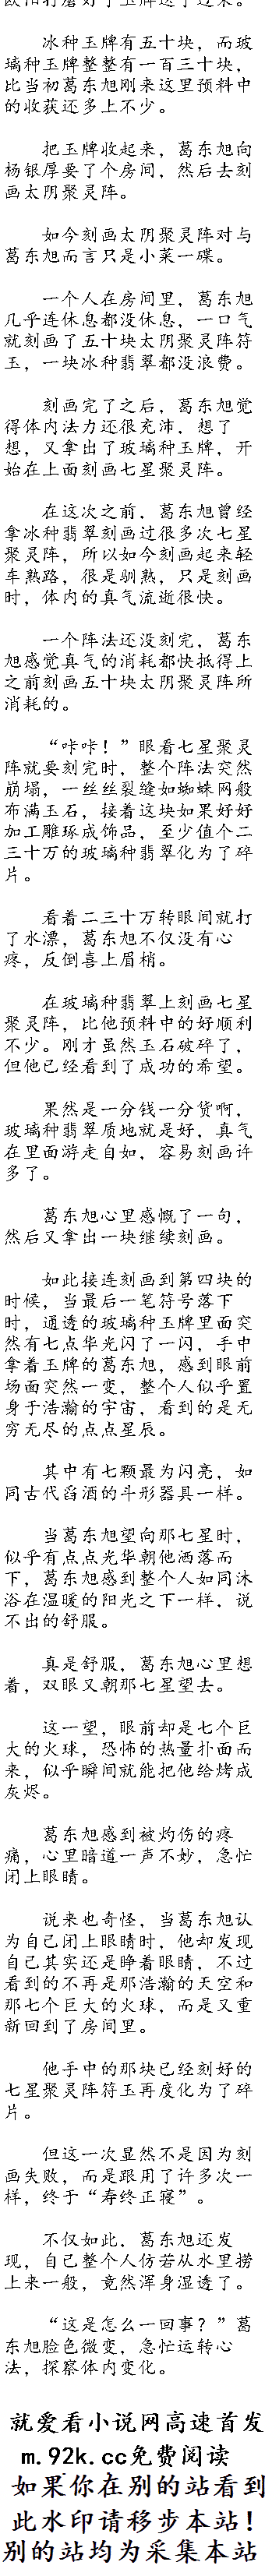 冰种玉牌有五十块，而玻
璃种玉牌整整有一百三十块，
比当初葛东旭刚来这里预料中
的收获还多上不少。
把玉牌收起来，葛东旭向
杨银厚要了个房间，然后去刻
画太阴聚灵阵。
如今刻画太阴聚灵阵对与
葛东旭而言只是小菜一碟。
一个人在房间里，葛东旭
几乎连休息都没休息，一口气
就刻画了五十块太阴聚灵阵符
玉，一块冰种翡翠都没浪费。
刻画完了之后，葛东旭觉
得体内法力还很充沛，想了
想，又拿出了玻璃种玉牌，开
始在上面刻画七星聚灵阵。
在这次之前，葛东旭曾经
拿冰种翡翠刻画过很多次七星
聚灵阵，所以如今刻画起来轻
车熟路，很是驯熟，只是刻画
时，体内的真气流逝很快。
一个阵法还没刻完，葛东
旭感觉真气的消耗都快抵得上
之前刻画五十块太阴聚灵阵所
消耗的。
“咔咔！”眼看七星聚灵
阵就要刻完时，整个阵法突然
崩塌，一丝丝裂缝如蜘蛛网般
布满玉石，接着这块如果好好
加工雕琢成饰品，至少值个二
三十万的玻璃种翡翠化为了碎
片。
看着二三十万转眼间就打
了水漂，葛东旭不仅没有心
疼，反倒喜上眉梢。
在玻璃种翡翠上刻画七星
聚灵阵，比他预料中的好顺利
不少。刚才虽然玉石破碎了，
但他已经看到了成功的希望。
果然是一分钱一分货啊，
玻璃种翡翠质地就是好，真气
在里面游走自如，容易刻画许
多了。
葛东旭心里感慨了一句，
然后又拿出一块继续刻画。
如此接连刻画到第四块的
时候，当最后一笔符号落下
时，通透的玻璃种玉牌里面突
然有七点华光闪了一闪，手中
拿着玉牌的葛东旭，感到眼前
场面突然一变，整个人似乎置
身于浩瀚的宇宙，看到的是无
穷无尽的点点星辰。
其中有七颗最为闪亮，如
同古代舀酒的斗形器具一样。
当葛东旭望向那七星时，
似乎有点点光华朝他洒落而
下，葛东旭感到整个人如同沐
浴在温暖的阳光之下一样，说
不出的舒服。
真是舒服，葛东旭心里想
着，双眼又朝那七星望去。
这一望，眼前却是七个巨
大的火球，恐怖的热量扑面而
来，似乎瞬间就能把他给烤成
灰烬。
葛东旭感到被灼伤的疼
痛，心里暗道一声不妙，急忙
闭上眼睛。
说来也奇怪，当葛东旭认
为自己闭上眼睛时，他却发现
自己其实还是睁着眼睛，不过
看到的不再是那浩瀚的天空和
那七个巨大的火球，而是又重
新回到了房间里。
他手中的那块已经刻好的
七星聚灵阵符玉再度化为了碎
片。
但这一次显然不是因为刻
画失败，而是跟用了许多次一
样，终于“寿终正寝”。
不仅如此，葛东旭还发
现，自己整个人仿若从水里捞
上来一般，竟然浑身湿透了。
“这是怎么一回事？”葛
东旭脸色微变，急忙运转心
法，探察体内变化。
就爱看小说网高速首发
m.92k.cc免费阅读
如果你在别的站看到
此水印请移步本站！
别的站均为采集本站